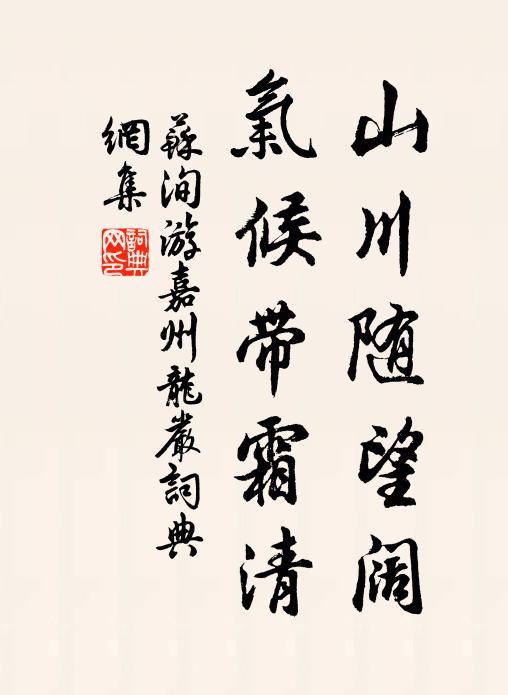 山川随望阔
氣候带霜清
蘇洵游嘉州龍嚴詞典
網集
詞典
网印